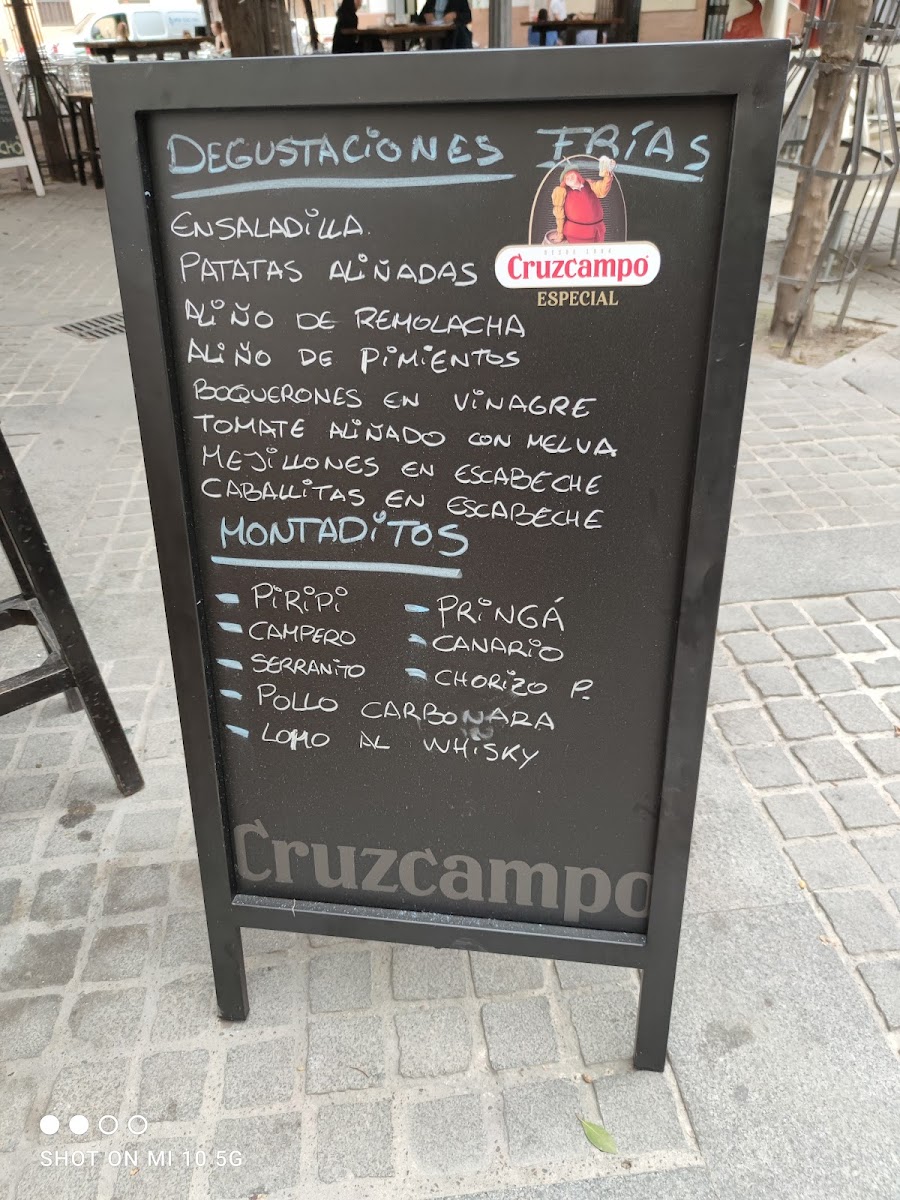 DEGUSTACIONES FRÍAS
ENSALADILLA.
PATATAS ALIÑADAS
DESDE 1904
Cruzcampo
ESPECIAL
ALIÑO DE REMOLACHA
ALIÑO DE PIMIENTOS
BOQUERONES EN VINAGRE
TOMATE ALIÑADO CON MELVA
MEJILLONES EN ESCABECHE
CABALLITAS EN ESCABECHE
MONTADITOS
- PIRIPI - PRINGÁ
- CAMPERO - CANARIO
- SERRANITO - CHORIZO P.
- POLLO CARBONARA
- LOMO AL WHISKY
Cruzcampo
CHO
SHOT ON MI 10 5G